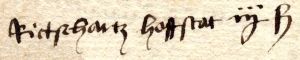 Rictschartz hoffstat iij ß